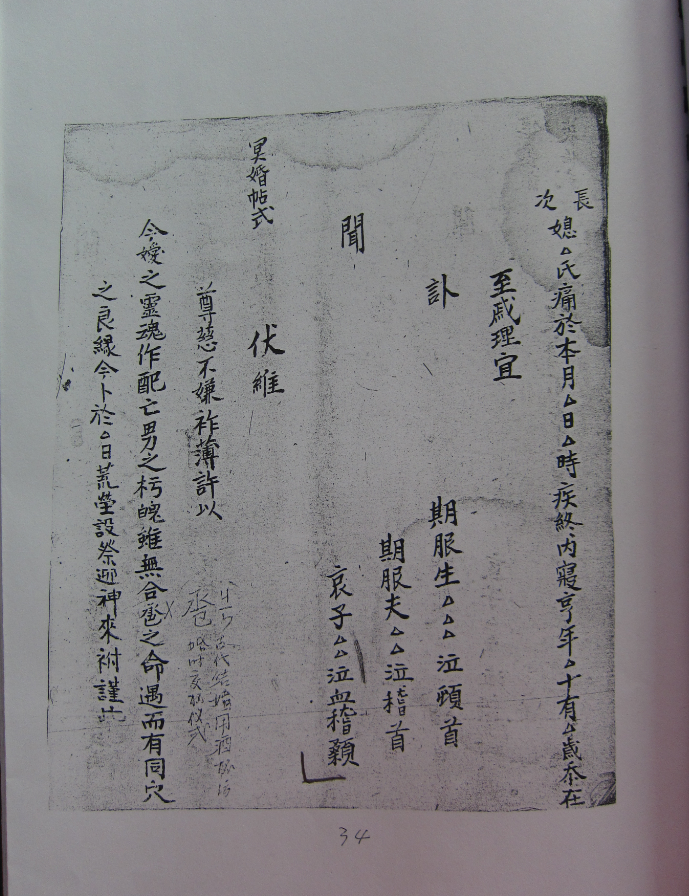 長
次
媳△氏痛於本月△日△時疾終內寢亨年△十有△歳忝在
至戚理宜
訃
期服生△△△泣頓首
期服夫△△泣稽首
聞
哀子△△泣血稽顙
冥婚帖式
伏維
尊慈不嫌祚薄許以
古代结婚用酒
婚时交杯仪式
令嫒之靈魂作配亡男之朽魄雖無合卺之命遇而有同穴
之良緣今卜於△日荒塋設祭迎神來祔謹此
34